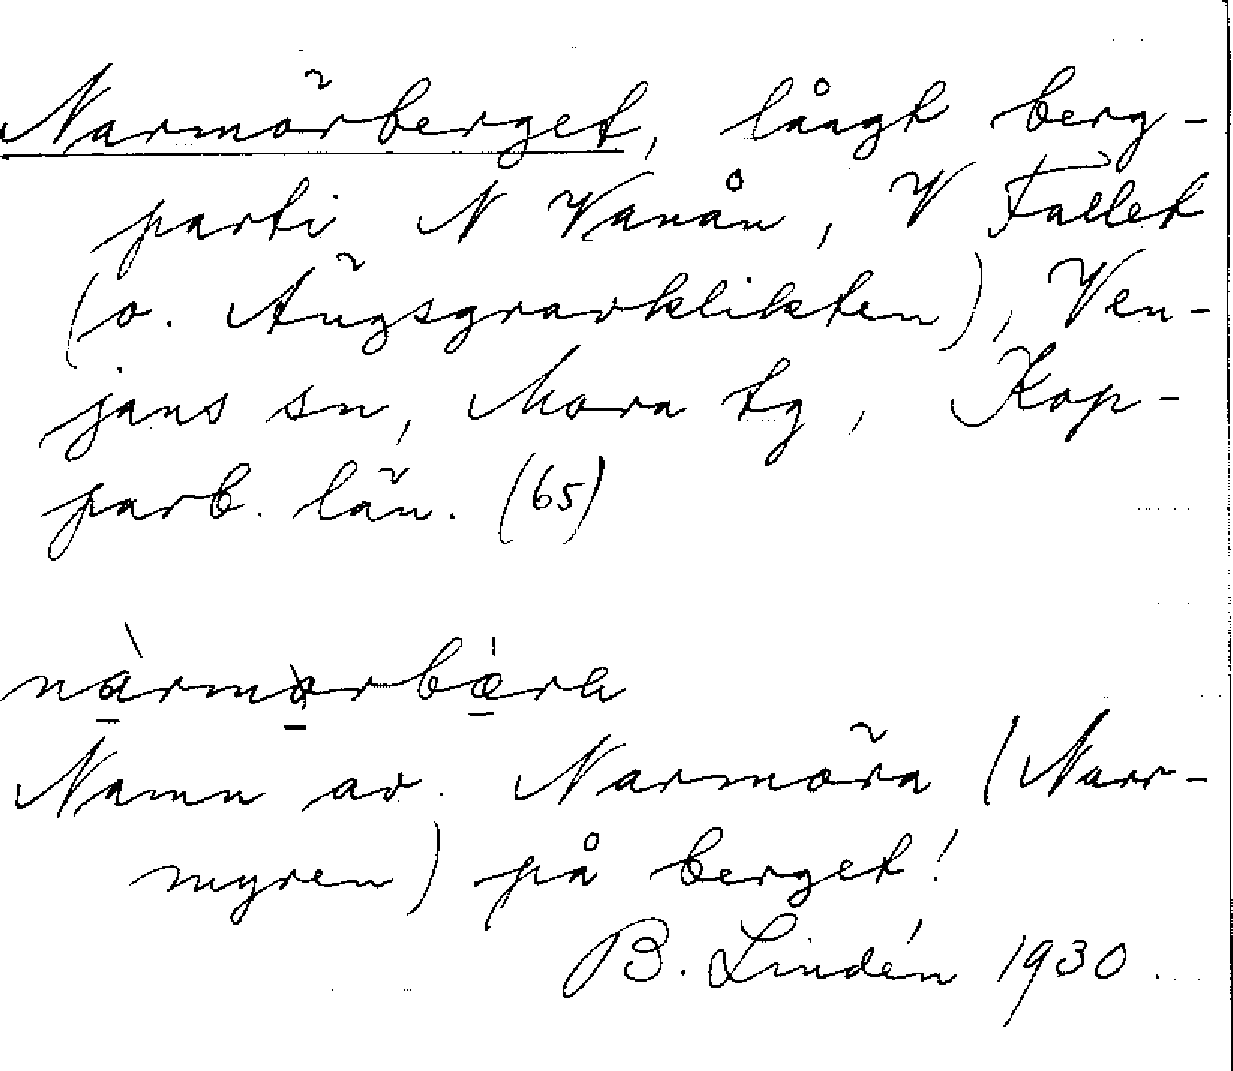 Narmörberget, lågt berg-
parti N Vanån, V Fallet
(o. Ängsgravklikten), Ven-
jans sn, Mora tg, Kop-
parb. län. (65)
nàrmorbärk
Namn av Narmöra (Narr-
myren) på berget!
B. Lindén 1930.